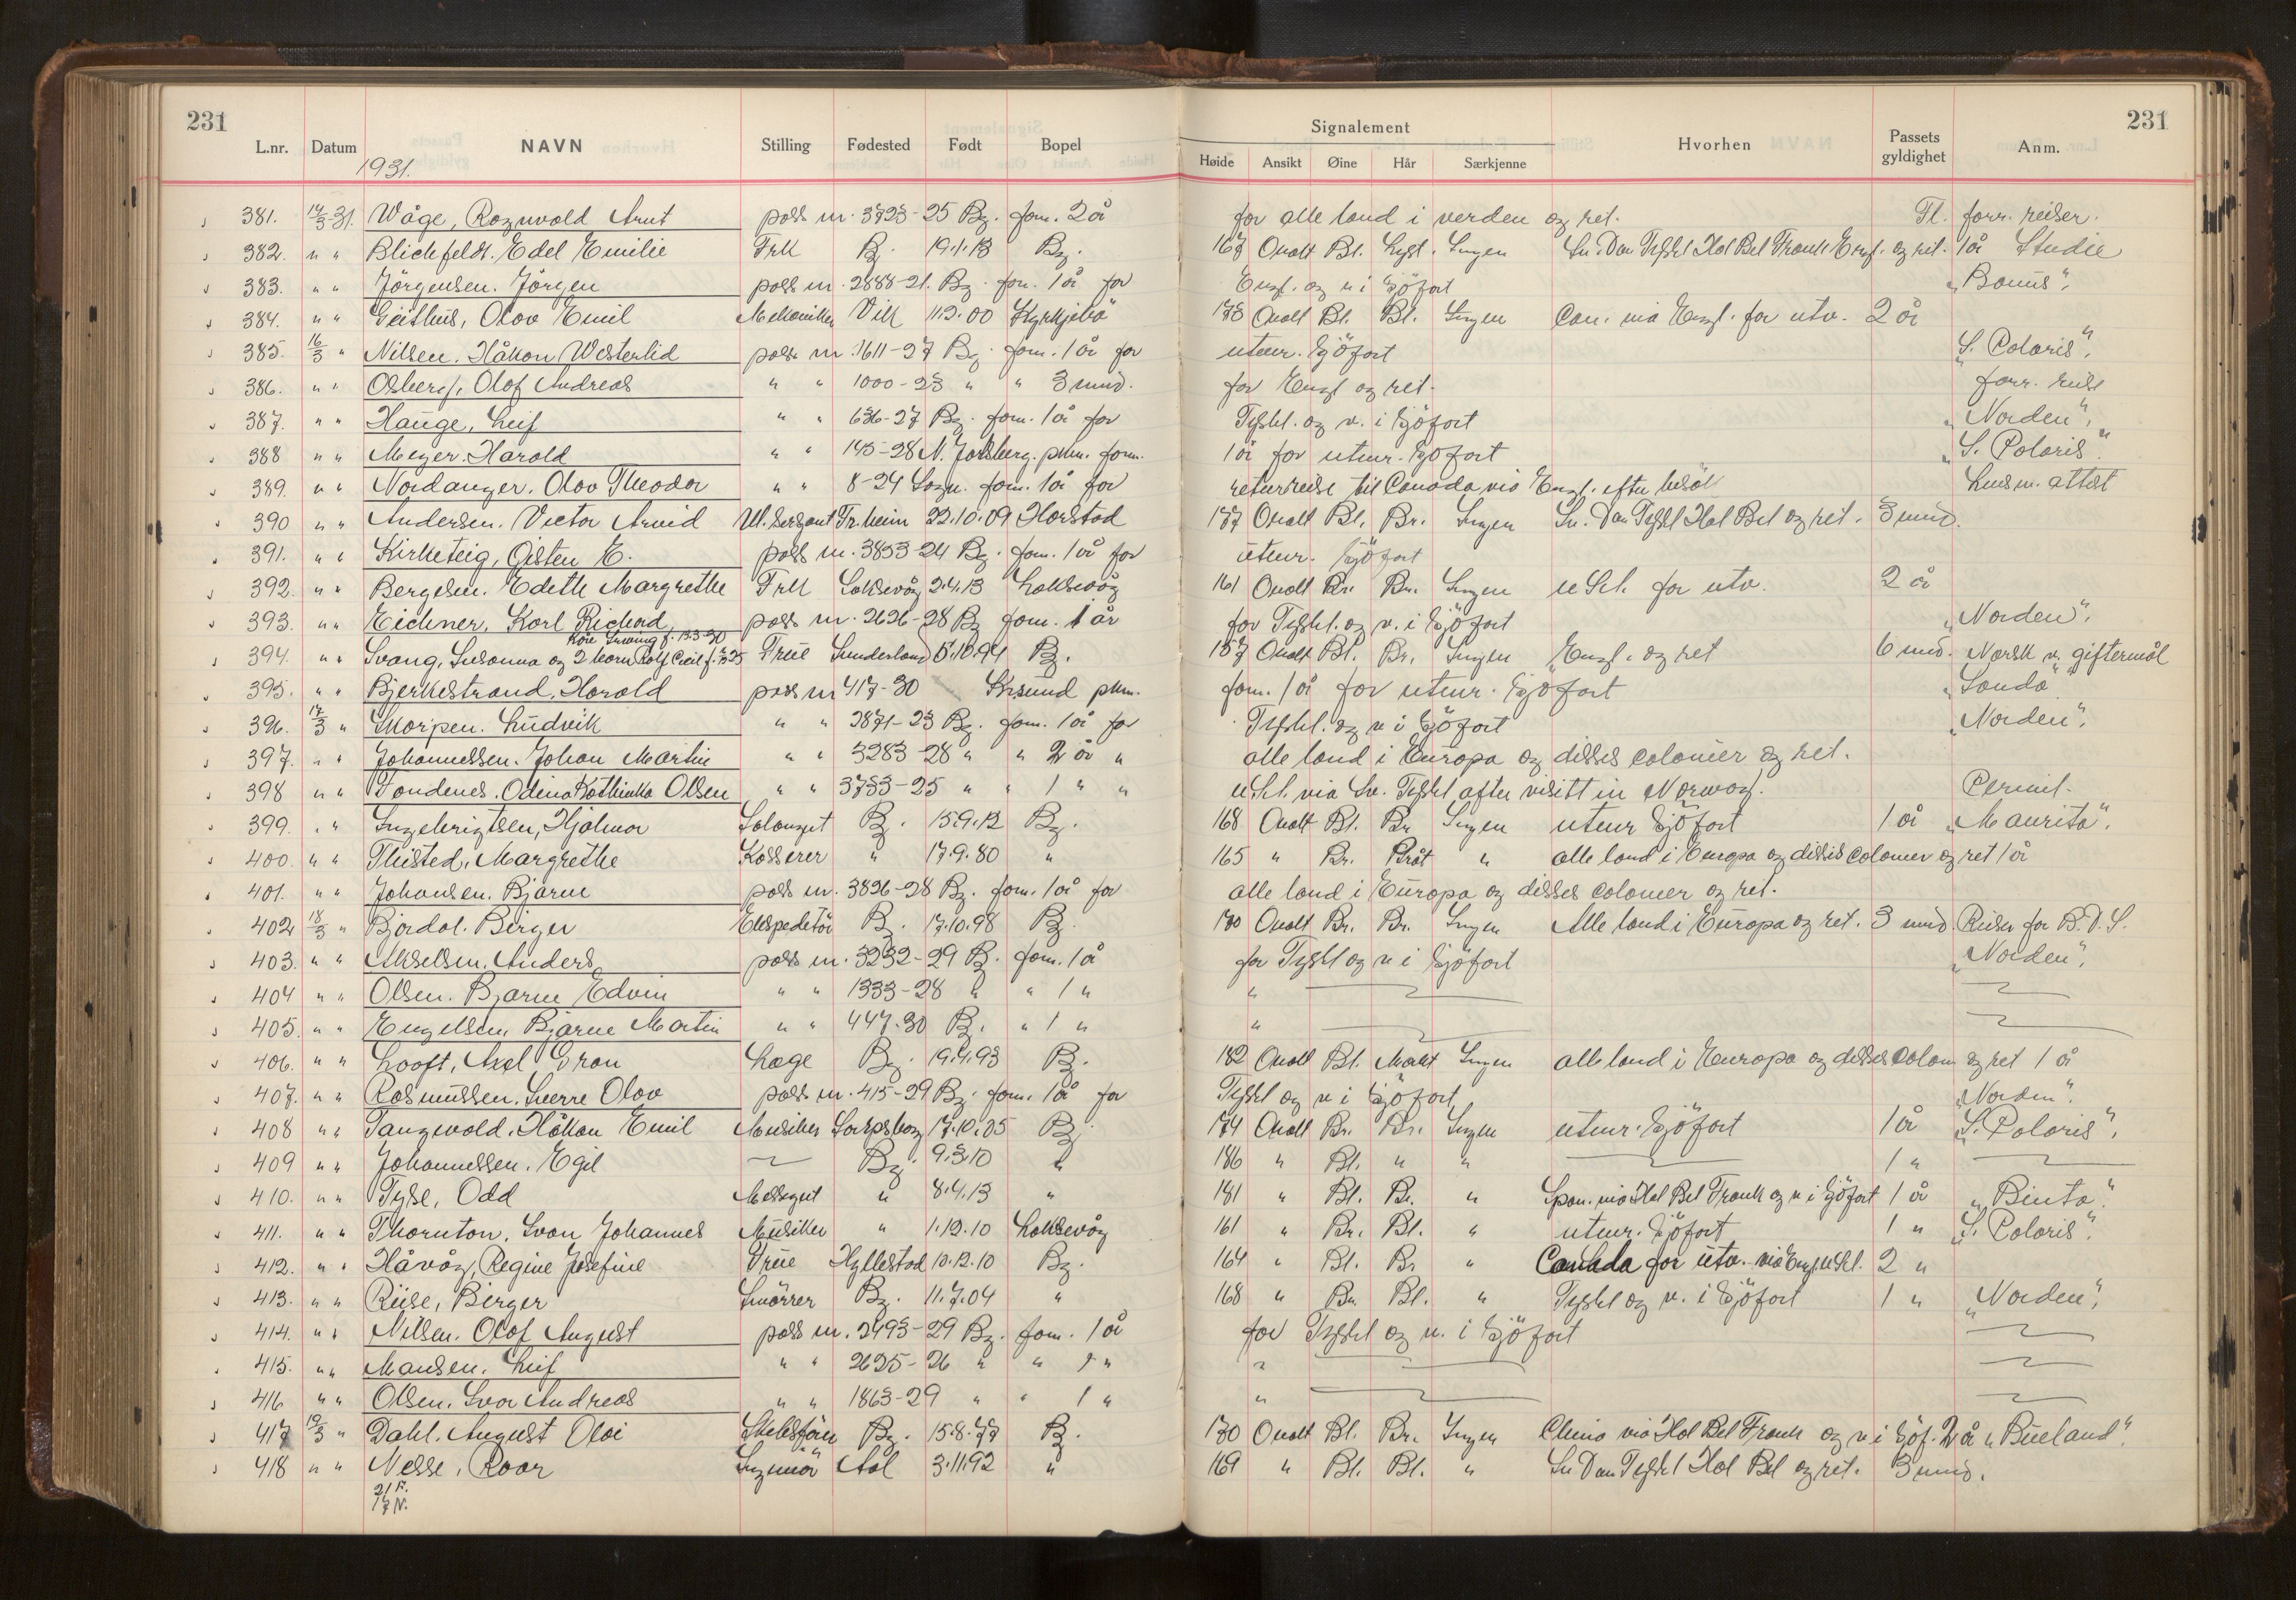 231 231
L.nr. Datum NAVN Stilling Fødested Født Bopel Signalement Høide Ansikt Øine Hår Særkjenne Hvorhen Passets gyldighet Anm.
1931.
381. 14/3-31. Wåge, Ragnvald Arnt pass nr. 3723-25 Bg. forn. 2 å for alle land i verden og ret. Tl. forr. reiser.
382. " " Blichfeldt. Edel Emilie Frk Bg. 19.1.13 Bg. 167 Ovalt Bl. Lyst. Ingen Sv. Dan Tyskl Hol Bel Frank Engl. og ret. 1 å Studie
383. " " Jörgensen. Jörgen pass nr. 2888-21. Bg. forn. 1 å for Engl. og v i Sjöfart "Bonus".
384. " " Geithus, Olav Emil Mekaniker Vik 11.2.00 Kyrkjebö 178 Ovalt Bl. Bl. Ingen Can. via Engl. for utv. 2 år
385. 16/3 " Nilsen. Håkon Westerlid pass nr. 1611-27 Bg. forn. 1 år for utenr. Sjöfart "S. Polaris".
386. " " Osberg, Olaf Andreas " " 1000-23 " " 3 mnd. for Engl og ret. forr. reise
387. " " Hauge, Leif " " 636-27 Bg. forn. 1 å for Tyskl. og v. i Sjöfart "Norden".
388 " " Meyer. Harald " " 145-28 N. Jarlsberg. pkm. forn. 1 å for utenr. Sjöfart "S. Polaris".
389. " " Nordanger. Olav Theodor " " 8-24 Sogn. forn. 1 å for returreise til Canada via Engl. efter besök Lensm. attest
390 " " Andersen. Victor Arvid Ul. Sersjant Tr.heim 22.10.09 Harstad 177 Ovalt Bl. Br. Ingen Sv. Dan Tyskl Hol Bel og ret. 3 mnd.
391. " " Kirketeig, Öisten E. pass nr. 3853-24 Bg. forn. 1 å for utenr. Sjöfart
392. " " Bergesen. Edith Margrethe Frk Laksevåg 2.4.13 Laksevåg 161 Ovalt Br. Br. Ingen U St. for utv. 2 år
393. " " Eichner, Karl Richard pass nr. 2626-28 Bg forn. 1 år for Tyskl. og v. i Sjöfart "Norden".
394. " " Svang, Susanna og 2 barn Rolf Cecil f. 25 Kåre Svang f. 13.3-30 Frue Sunderland 5.10.94 Bg. 157 Ovalt Bl. Br. Ingen Engl. og ret 6 mnd. Norsk v. giftermål
395. " " Bjerkestrand, Harald pass nr 417-30 Krsund pkm. forn. 1 å for utenr. Sjöfart "Sonda"
396. 17/3 " Skorpen. Ludvik " " 2871-23 Bg. forn. 1 å for Tyskl. og v i Sjöfart "Norden".
397. " " Johannessen. Johan Martin " " 3283-28 " " 2 år " alle land i Europa og disses colonier og ret.
398 " " Tondenes. Odina Kathinka Olsen " " 3753-25 " " 1 " " U St. via Sv. Tyskl after visitt in Norway. Permit.
399. " " Ingebrigtsen, Hjalmar Salongut Bg. 15.9.12 Bg. 168 Ovalt Bl. Br Ingen utenr Sjöfart 1 å "Maurita".
400. " " Thisted, Margrethe Kasserer " 17.9.80 " 165 " Br. Gråt " alle land i Europa og disses colonier og ret 1 å
401. " " Johansen. Bjarne pass nr. 3826-28 Bg. forn. 1 å for alle land i Europa og disses colonier og ret.
402 18/3 " Bjordal. Birger Ekspeditör Bg. 17.10.98 Bg. 170 Ovalt Br. Br. Ingen Alle land i Europa og ret. 3 mnd Reiser for B.D.S.
403. " " Akselsen, Anders pass nr. 3232-29 Bg. forn. 1 å for Tyskl og v i Sjöfart "Norden".
404 " " Olsen. Bjarne Edvin " " 1333-28 " " 1 " "
405. " " Engelsen, Bjarne Martin " " 447-30 Bg. " 1 " "
406. " " Looft, Axel Gran Læge Bg. 19.4.93 Bg. 182 Ovalt Bl. Mørkt Ingen alle land i Europa og disses colon og ret 1 å
407. " " Rasmussen. Sverre Olav pass nr. 415-29 Bg. forn. 1 å for Tyskl og v i Sjöfart "Norden".
408 " " Tangvald, Håkon Emil Musiker Sarpsborg 17.10.05 Bg. 174 Ovalt Br. Br. Ingen utenr. Sjöfart 1 å "S. Polaris".
409 " " Johannessen. Egil Bg. 9.3.10 " 186 " Bl. " " 1 "
410. " " Tyse, Odd Messegut " 8.4.13 " 181 " Bl. Br. " Span. via Hol Bel Frank og v i Sjöfart 1 å "Pinta".
411. " " Thornton. Ivan Johannes Musiker " 1.12.10 Laksevåg 161 " Br. Bl. " utenr. Sjöfart 1 " "S. Polaris".
412. " " Håvåg, Regine Josefine Frue Hyllestad 10.12.10 Bg. 164 " Bl. Br " Canada for utv. via Engl. U St. 2 "
413. " " Riise, Birger Smörrer Bg. 11.7.04 " 168 " Br. Bl. " Tyskl og v. i Sjöfart 1 " "Norden".
414. " " Nilsen. Olaf August pass nr. 2493-29 Bg. forn. 1 å for Tyskl og v. i Sjöfart
415. " " Monsen. Leif " " 2625-26 " " 1 " "
416 " " Olsen. Ivar Andreas " " 1863-29 " " 1 " "
417 19/3 " Dahl. August Olai Skibsförer Bg. 15.8.77 Bg. 170 Ovalt Bl. Br. Ingen China via Hol Bel Frank og v i Sjöf. 2 å "Bueland".
418 " " Nesse, Roar Ingeniör Aal 3.11.92 " 169 " Bl. Bl. " Sv Dan Tyskl Hol Bel og ret. 3 mnd.
21 F.
17 N.